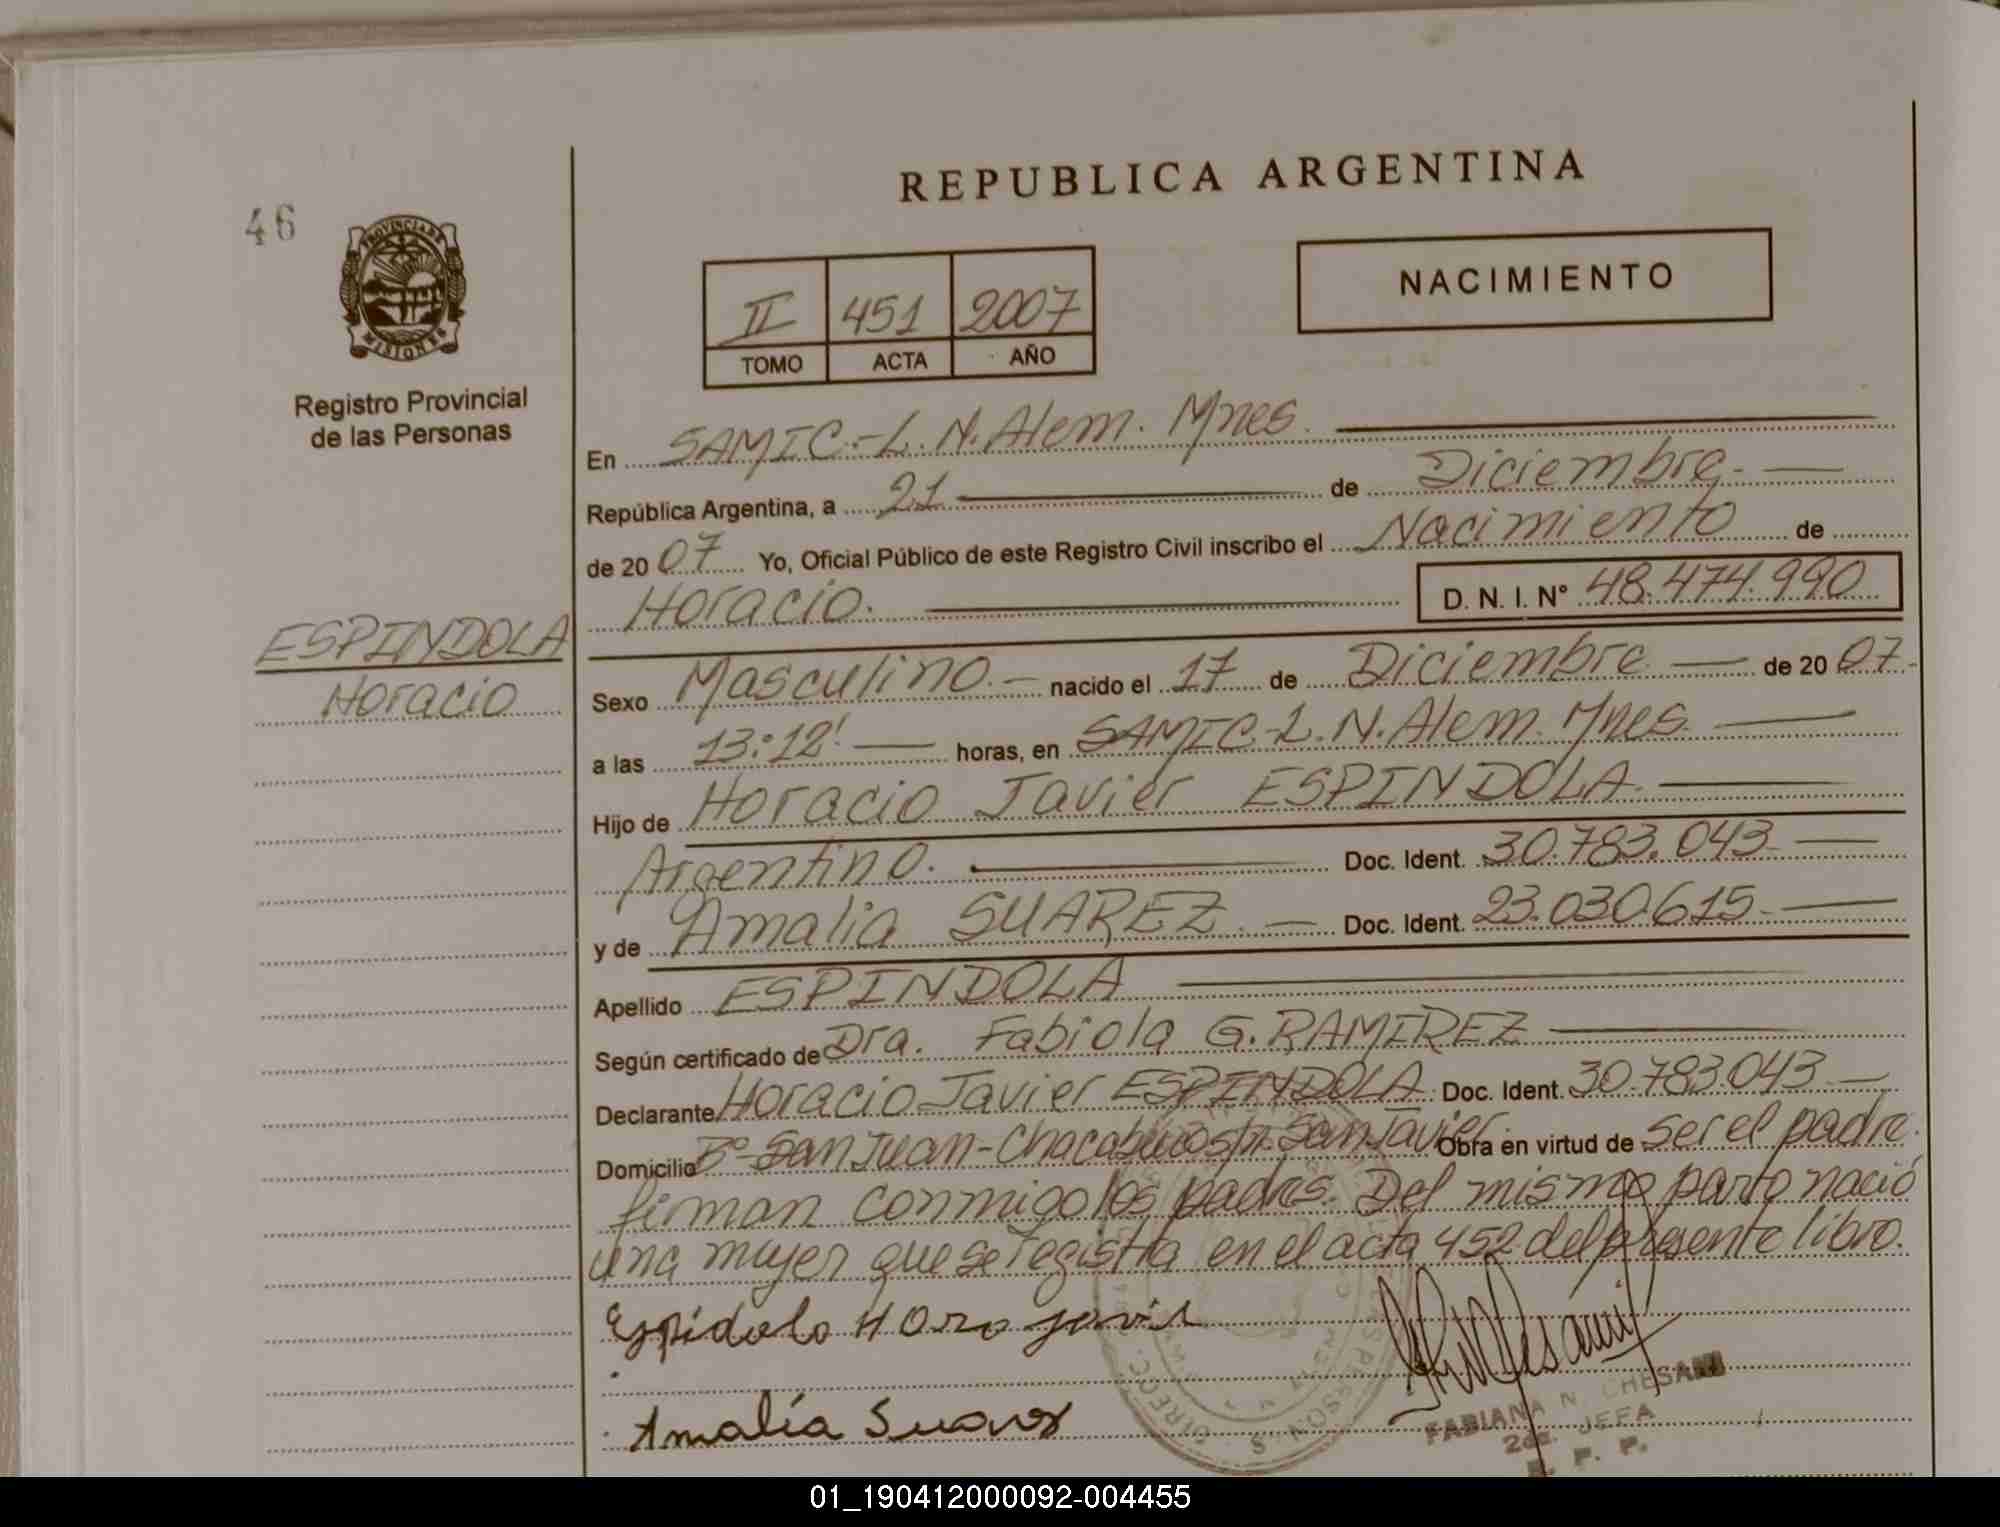 REPUBLICA ARGENTINA
46
PROVINCIA DE
MISIONES
Registro Provincial
de las Personas
II 451 2007
TOMO ACTA AÑO
NACIMIENTO
En SAMIC.-L.N.Alem. Mnes.
República Argentina, a 21 de Diciembre.
de 2007 Yo, Oficial Público de este Registro Civil inscribo el Nacimiento de
Horacio. D. N. I. Nº 48.474.990
ESPINDOLA
Horacio
Sexo Masculino. nacido el 17 de Diciembre de 2007
a las 13:12' horas, en SAMIC-L.N.Alem. Mnes.
Hijo de Horacio Javier ESPINDOLA.
Argentino. Doc. Ident. 30.783.043
y de Amalia SUAREZ. Doc. Ident. 23.030.615.
Apellido ESPINDOLA
Según certificado de Dra. Fabiola G. RAMIREZ
Declarante Horacio Javier ESPINDOLA. Doc. Ident. 30.783.043
Domicilio Bº San Juan-Chacabuco s/n. San Javier. Obra en virtud de ser el padre.
firman conmigo los padres. Del mismo parto nació
una mujer que se registra en el acta 452 del presente libro.
Espídola Horo javir
Amalía Suares
FABIANA N. CHESANI
2da. JEFA
R. P. P.
01_190412000092-004455